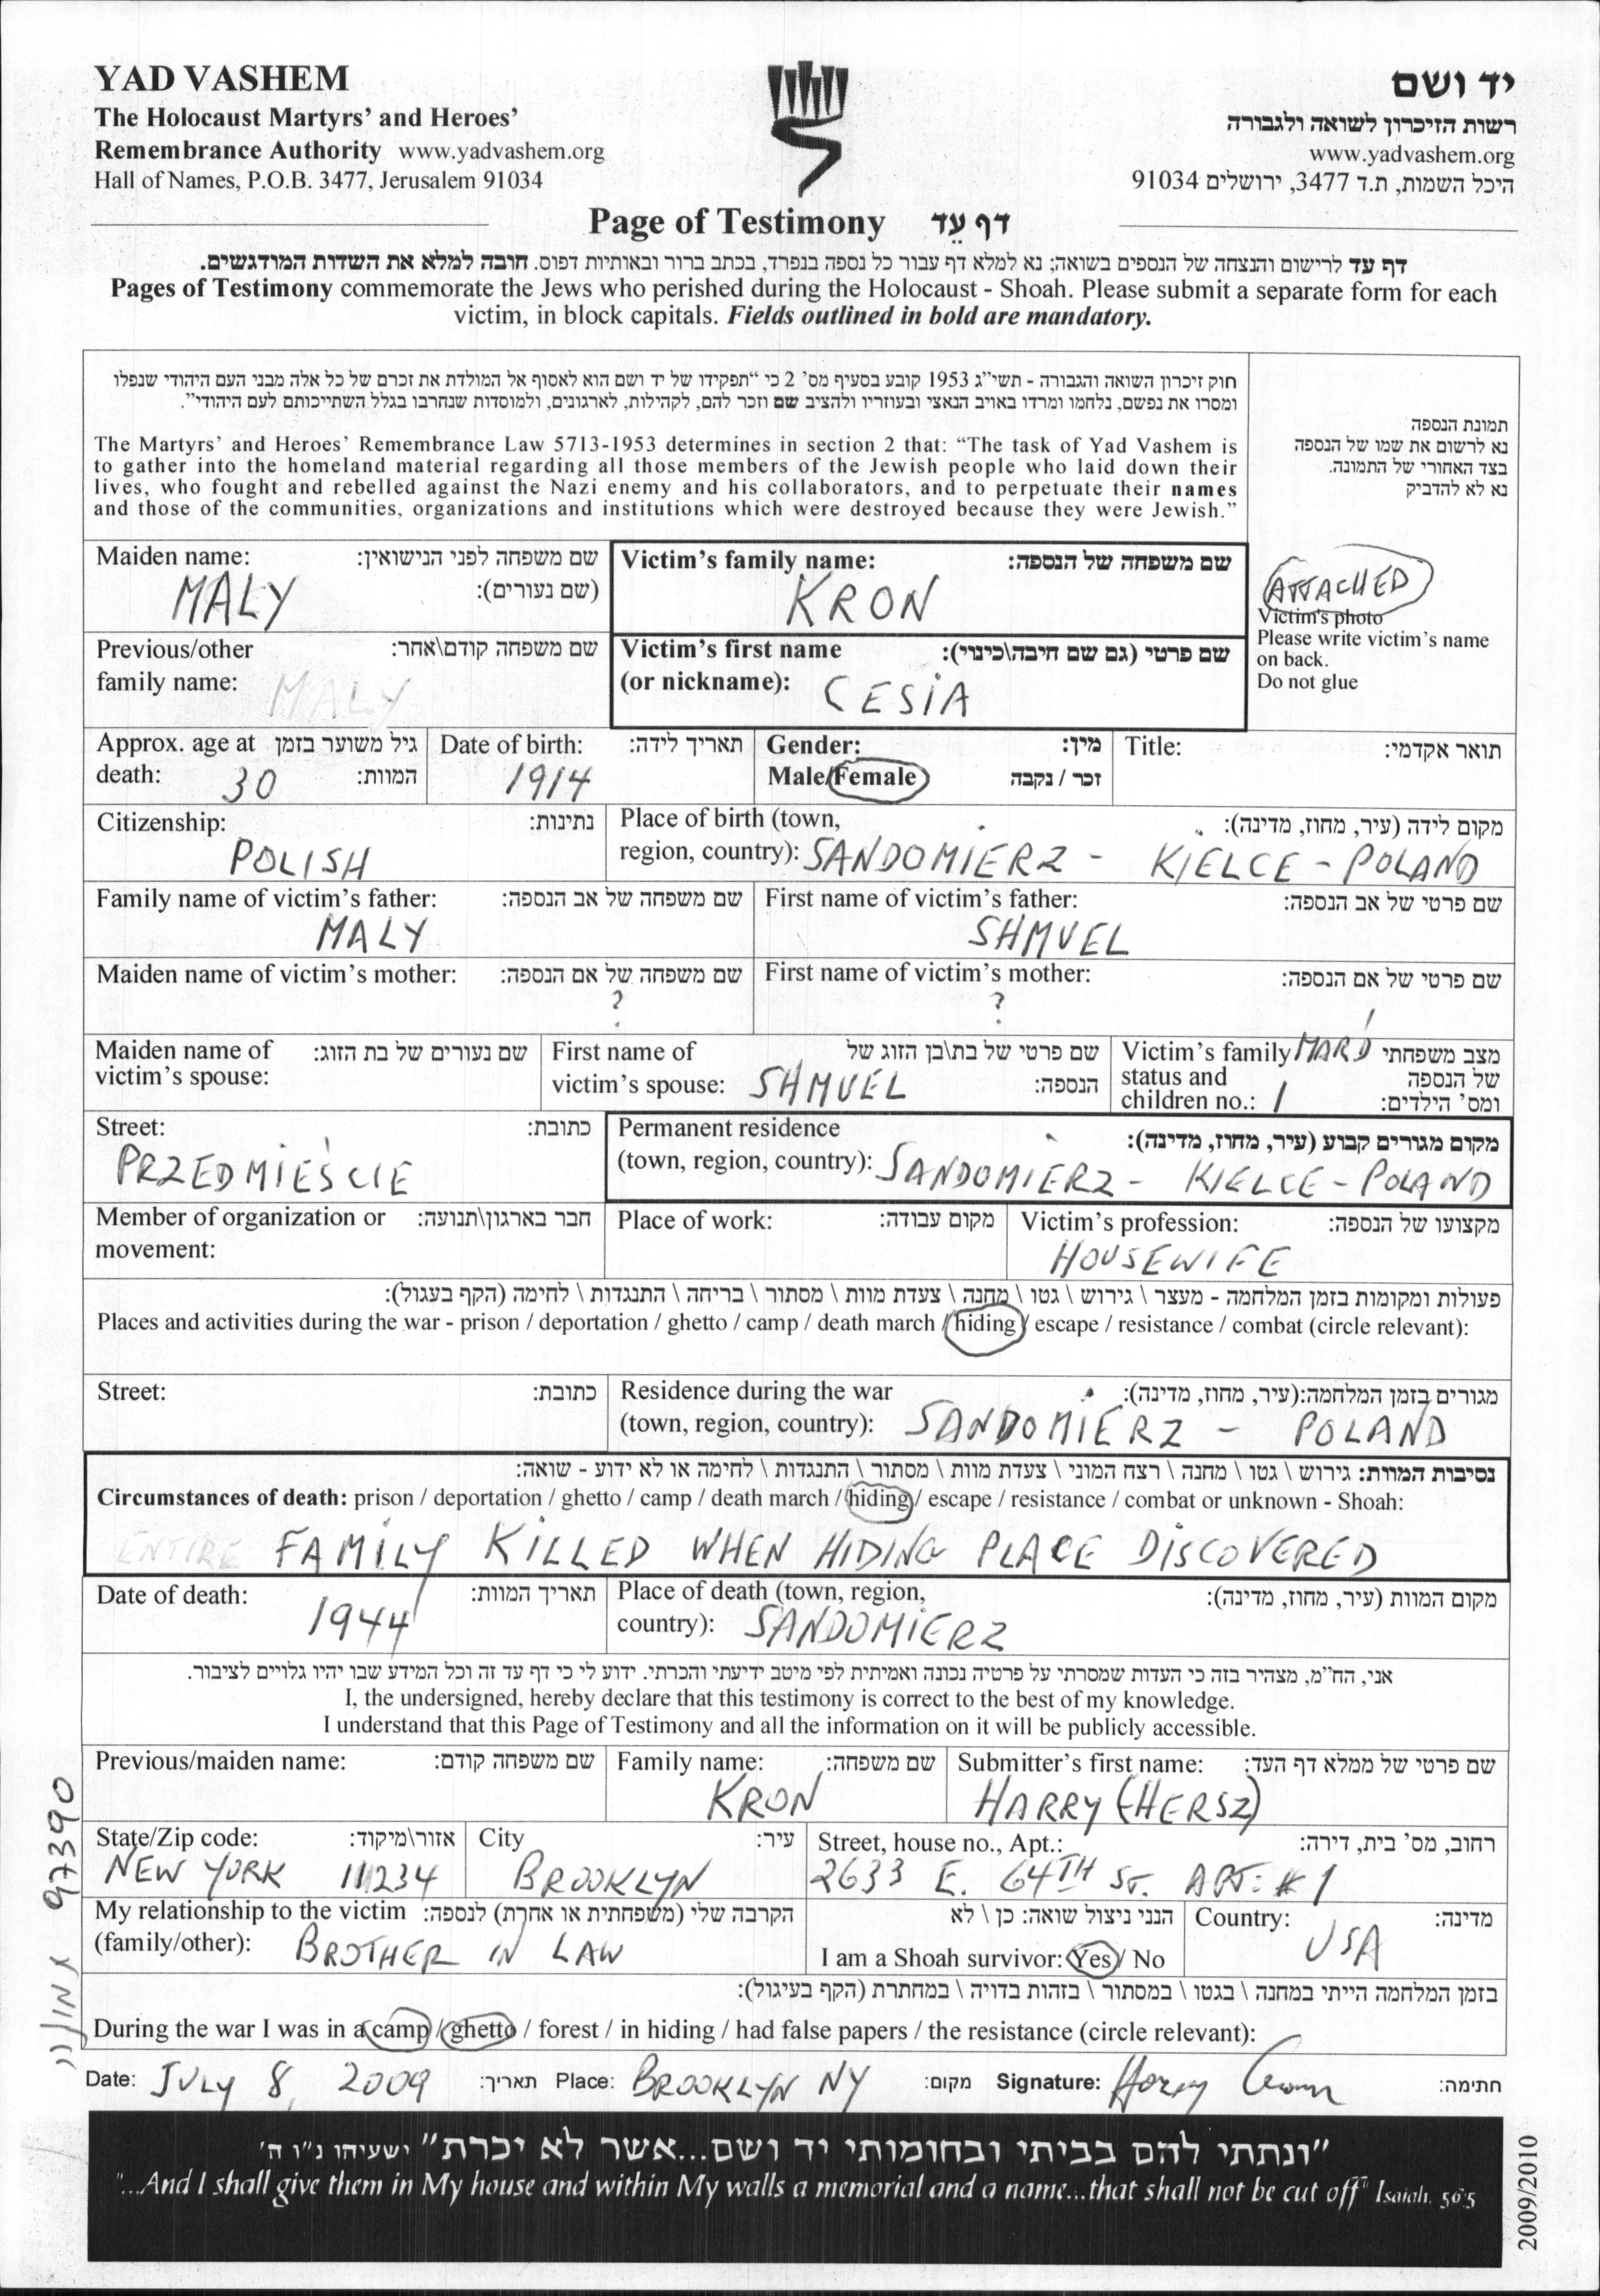 YAD VASHEM
The Holocaust Martyrs' and Heroes'
Remembrance Authority www.yadvashem.org
Hall of Names, P.O.B. 3477, Jerusalem 91034
יד ושם
רשות הזיכרון לשואה ולגבורה
www.yadvashem.org
היכל השמות, ת.ד 3477, ירושלים 91034
Page of Testimony דף עֵד
דף עד לרישום והנצחה של הנספים בשואה; נא למלא דף עבור כל נספה בנפרד, בכתב ברור ובאותיות דפוס. חובה למלא את השדות המודגשים.
Pages of Testimony commemorate the Jews who perished during the Holocaust - Shoah. Please submit a separate form for each
victim, in block capitals. Fields outlined in bold are mandatory.
חוק זיכרון השואה והגבורה - תשי"ג 1953 קובע בסעיף מס' 2 כי "תפקידו של יד ושם הוא לאסוף אל המולדת את זכרם של כל אלה מבני העם היהודי שנפלו
ומסרו את נפשם, נלחמו ומרדו באויב הנאצי ובעוזריו ולהציב שם וזכר להם, לקהילות, לארגונים, ולמוסדות שנחרבו בגלל השתייכותם לעם היהודי".
The Martyrs' and Heroes' Remembrance Law 5713-1953 determines in section 2 that: "The task of Yad Vashem is
to gather into the homeland material regarding all those members of the Jewish people who laid down their
lives, who fought and rebelled against the Nazi enemy and his collaborators, and to perpetuate their names
and those of the communities, organizations and institutions which were destroyed because they were Jewish."
תמונת הנספה
נא לרשום את שמו של הנספה
בצד האחורי של התמונה.
נא לא להדביק
ATTACHED
Victim's photo
Please write victim's name
on back.
Do not glue
Maiden name: שם משפחה לפני הנישואין:
(שם נעורים):
MALY
Victim's family name: שם משפחה של הנספה:
KRON
Previous/other שם משפחה קודם\אחר:
family name: MALY
Victim's first name שם פרטי (גם שם חיבה\כינוי):
(or nickname): CESIA
Approx. age at גיל משוער בזמן
death: 30 המוות:
Date of birth: תאריך לידה:
1914
Gender: מין:
Male/Female זכר / נקבה
Title: תואר אקדמי:
Citizenship: נתינות:
POLISH
Place of birth (town, מקום לידה (עיר, מחוז, מדינה):
region, country): SANDOMIERZ - KIELCE - POLAND
Family name of victim's father: שם משפחה של אב הנספה:
MALY
First name of victim's father: שם פרטי של אב הנספה:
SHMUEL
Maiden name of victim's mother: שם משפחה של אם הנספה:
?
First name of victim's mother: שם פרטי של אם הנספה:
?
Maiden name of שם נעורים של בת הזוג:
victim's spouse:
First name of שם פרטי של בת\בן הזוג של
victim's spouse: SHMUEL הנספה:
Victim's family MAR'D מצב משפחתי
status and של הנספה
children no.: 1 ומס' הילדים:
Street: כתובת:
PRZEDMIEŚCIE
Permanent residence מקום מגורים קבוע (עיר, מחוז, מדינה):
(town, region, country): SANDOMIERZ - KIELCE - POLAND
Member of organization or חבר בארגון\תנועה:
movement:
Place of work: מקום עבודה:
Victim's profession: מקצועו של הנספה:
HOUSEWIFE
פעולות ומקומות בזמן המלחמה - מעצר \ גירוש \ גטו \ מחנה \ צעדת מוות \ מסתור \ בריחה \ התנגדות \ לחימה (הקף בעגול):
Places and activities during the war - prison / deportation / ghetto / camp / death march / hiding / escape / resistance / combat (circle relevant):
Street: כתובת:
Residence during the war מגורים בזמן המלחמה:(עיר, מחוז, מדינה):
(town, region, country): SANDOMIERZ - POLAND
נסיבות המוות: גירוש \ גטו \ מחנה \ רצח המוני \ צעדת מוות \ מסתור \ התנגדות \ לחימה או לא ידוע - שואה:
Circumstances of death: prison / deportation / ghetto / camp / death march / hiding / escape / resistance / combat or unknown - Shoah:
ENTIRE FAMILY KILLED WHEN HIDING PLACE DISCOVERED
Date of death: תאריך המוות:
1944
Place of death (town, region, מקום המוות (עיר, מחוז, מדינה):
country): SANDOMIERZ
אני, הח"מ, מצהיר בזה כי העדות שמסרתי על פרטיה נכונה ואמיתית לפי מיטב ידיעתי והכרתי. ידוע לי כי דף עד זה וכל המידע שבו יהיו גלויים לציבור.
I, the undersigned, hereby declare that this testimony is correct to the best of my knowledge.
I understand that this Page of Testimony and all the information on it will be publicly accessible.
Previous/maiden name: שם משפחה קודם:
Family name: שם משפחה:
KRON
Submitter's first name: שם פרטי של ממלא דף העד:
HARRY (HERSZ)
State/Zip code: אזור\מיקוד:
NEW YORK 11234
City עיר:
BROOKLYN
Street, house no., Apt.: רחוב, מס' בית, דירה:
2633 E. 64TH ST. APT: #1
My relationship to the victim הקרבה שלי (משפחתית או אחרת) לנספה:
(family/other): BROTHER IN LAW
הנני ניצול שואה: כן \ לא
I am a Shoah survivor: Yes / No
Country: מדינה:
USA
בזמן המלחמה הייתי במחנה \ בגטו \ במסתור \ בזהות בדויה \ במחתרת (הקף בעיגול):
During the war I was in a camp / ghetto / forest / in hiding / had false papers / the resistance (circle relevant):
Date: JULY 8, 2009 תאריך: Place: BROOKLYN NY מקום: Signature: Harry Kron חתימה:
97390
"ונתתי להם בביתי ובחומותי יד ושם...אשר לא יכרת" ישעיהו נ"ו ה'
"...And I shall give them in My house and within My walls a memorial and a name...that shall not be cut off" Isaiah, 56:5
2009/2010